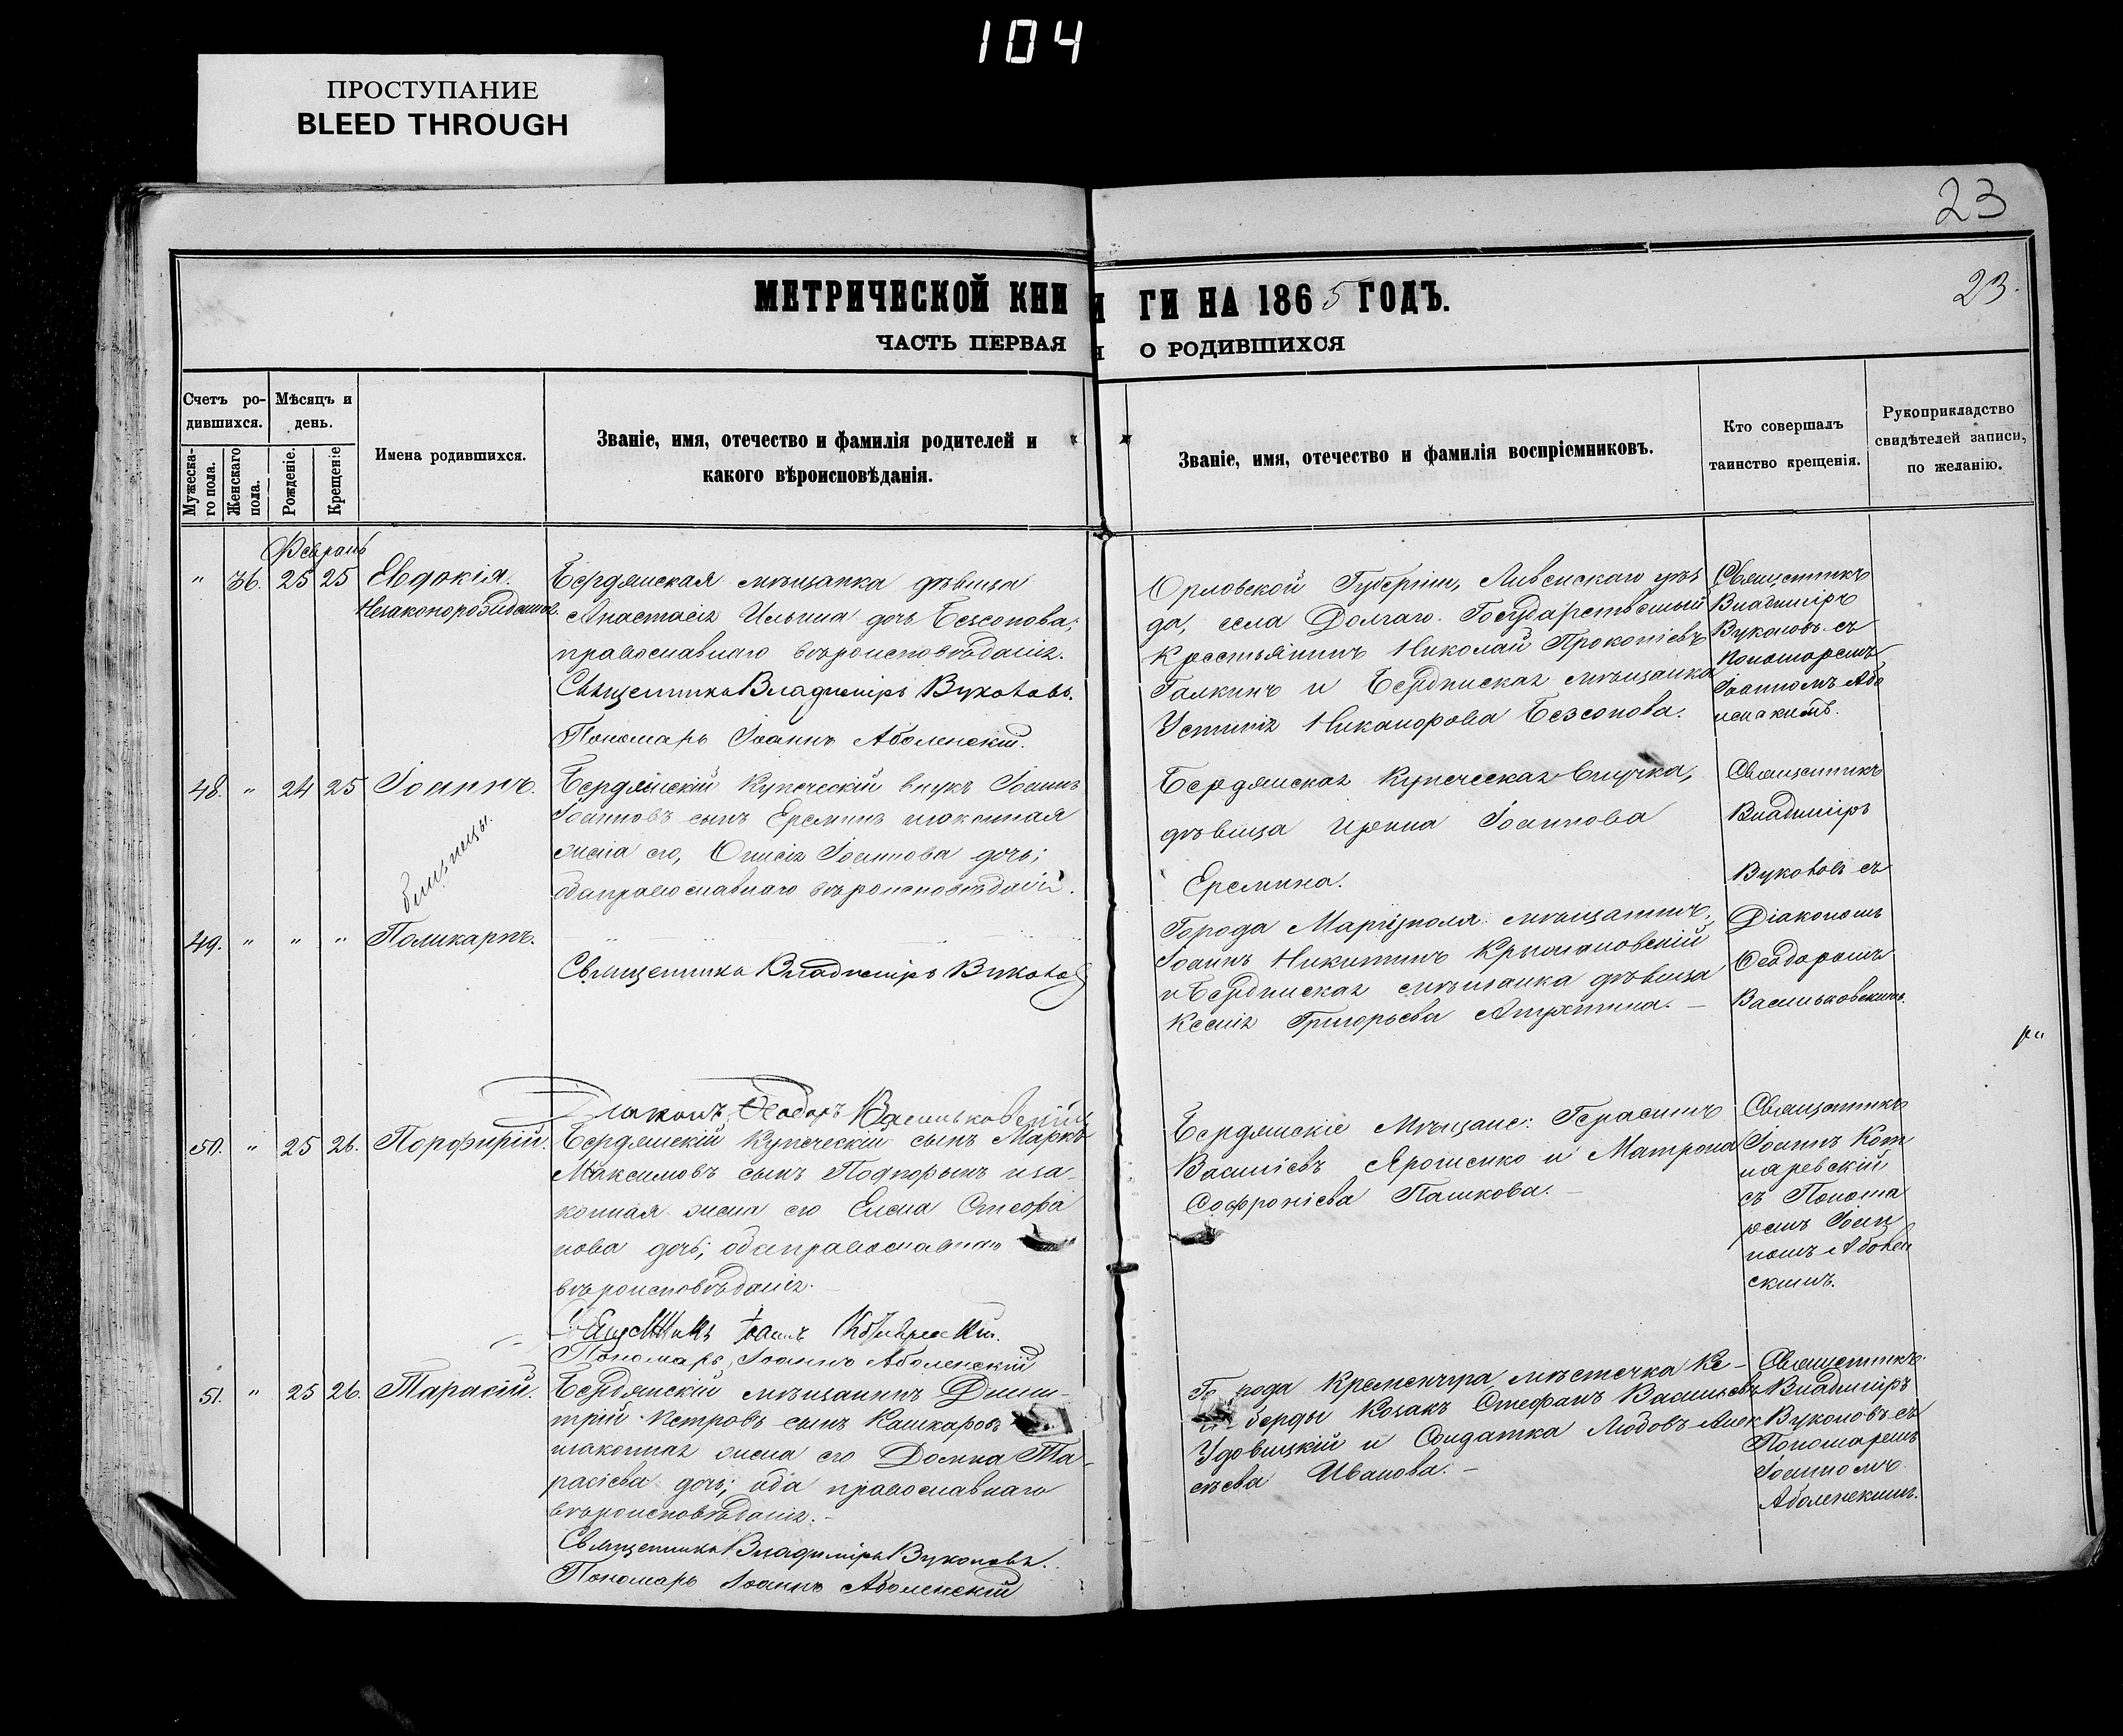 104
ПРОСТУПАНИЕ
BLEED THROUGH
23
23.
МЕТРИЧЕСКОЙ КНИ
И ГИ НА 1865 ГОДЪ.
ЧАСТЬ ПЕРВАЯ
О РОДИВШИХСЯ
Счетъ ро-
дившихся.
Мѣсяцъ и
день.
Мужеска-
го пола.
Женскаго
пола.
Рожденіе.
Крещеніе
Имена родившихся.
Званіе, имя, отечество и фамилія родителей и
какого вѣроисповѣданія.
Званіе, имя, отечество и фамилія воспріемниковъ.
Кто совершалъ
таинство крещенія.
Рукоприкладство
свидѣтелей записи,
по желанію.
Февраль
" 36. 25 25 Евдокія.
Незаконорожденная.
Бердянская мѣщанка дѣвица
Анастасія Ильина дочь Безсонова;
православнаго вѣроисповѣданія.
Священникъ Владиміръ Вуколовъ.
Пономарь Іоаннъ Аболенскій.
Орловской Губерніи, Ливенскаго уѣз
да, села Долгаго Государственный
Крестьянинъ Николай Прокопіевъ
Галкинъ и Бердянская мѣщанка
Устинія Никанорова Безсонова.
Священникъ
Владиміръ
Вуколовъ съ
Пономаремъ
Іоанномъ Або
ленскимъ.
48. " 24 25 Іоаннъ.
близнецы.
Бердянскій Купеческій внукъ Іоаннъ
Іоанновъ сынъ Ереминъ изаконная
жена его, Онисія Іоаннова дочь;
оба православнаго вѣроисповѣданія.
Бердянская Купеческая внучка,
дѣвица Ирина Іоаннова
Еремина.
Священникъ
Владиміръ
Вуколовъ съ
Діакономъ
Ѳеодоромъ
Васильковскимъ.
49. " " " Поликарпъ.
Священникъ Владиміръ Вуколовъ
Діаконъ Ѳеодоръ Васильковскій
Города Маріуполя мѣщанинъ,
Іоаннъ Никитинъ Крыжановскій
и Бердянская мѣщанка дѣвица
Ксенія Григорьева
50. " 25 26. Порфирій.
Бердянскій Купеческій сынъ Маркъ
Максимовъ сынъ Подпорынъ иза-
конная жена его Елена Стефа
нова дочь; оба православнаго
вѣроисповѣданія.
Священникъ Іоаннъ Котляревскій.
Пономарь Іоаннъ Аболенскій
Бердянскіе Мѣщане: Герасимъ
Василіевъ Ярошенко и Матрона
Софроніева Пашкова.
Священникъ
Іоаннъ Кот
ляревскій
съ Понома
ремъ Іоан
номъ Аболен
скимъ.
51. " 25 26. Тарасій.
Бердянскій мѣщанинъ Дими-
трій Петровъ сынъ Кашкаровъ
изаконная жена его Домна Та-
расіева дочь; оба православнаго
вѣроисповѣданія.
Священникъ Владиміръ Вуколовъ.
Пономарь Іоаннъ Аболенскій
Города Кременчуга мѣстечка Ке-
берды Козакъ Стефанъ Васильевъ
Удовицкій и Солдатка Любовь Алек
сѣева Иванова.
Священникъ
Владиміръ
Вуколовъ съ
Пономаремъ
Іоанномъ
Аболенскимъ.